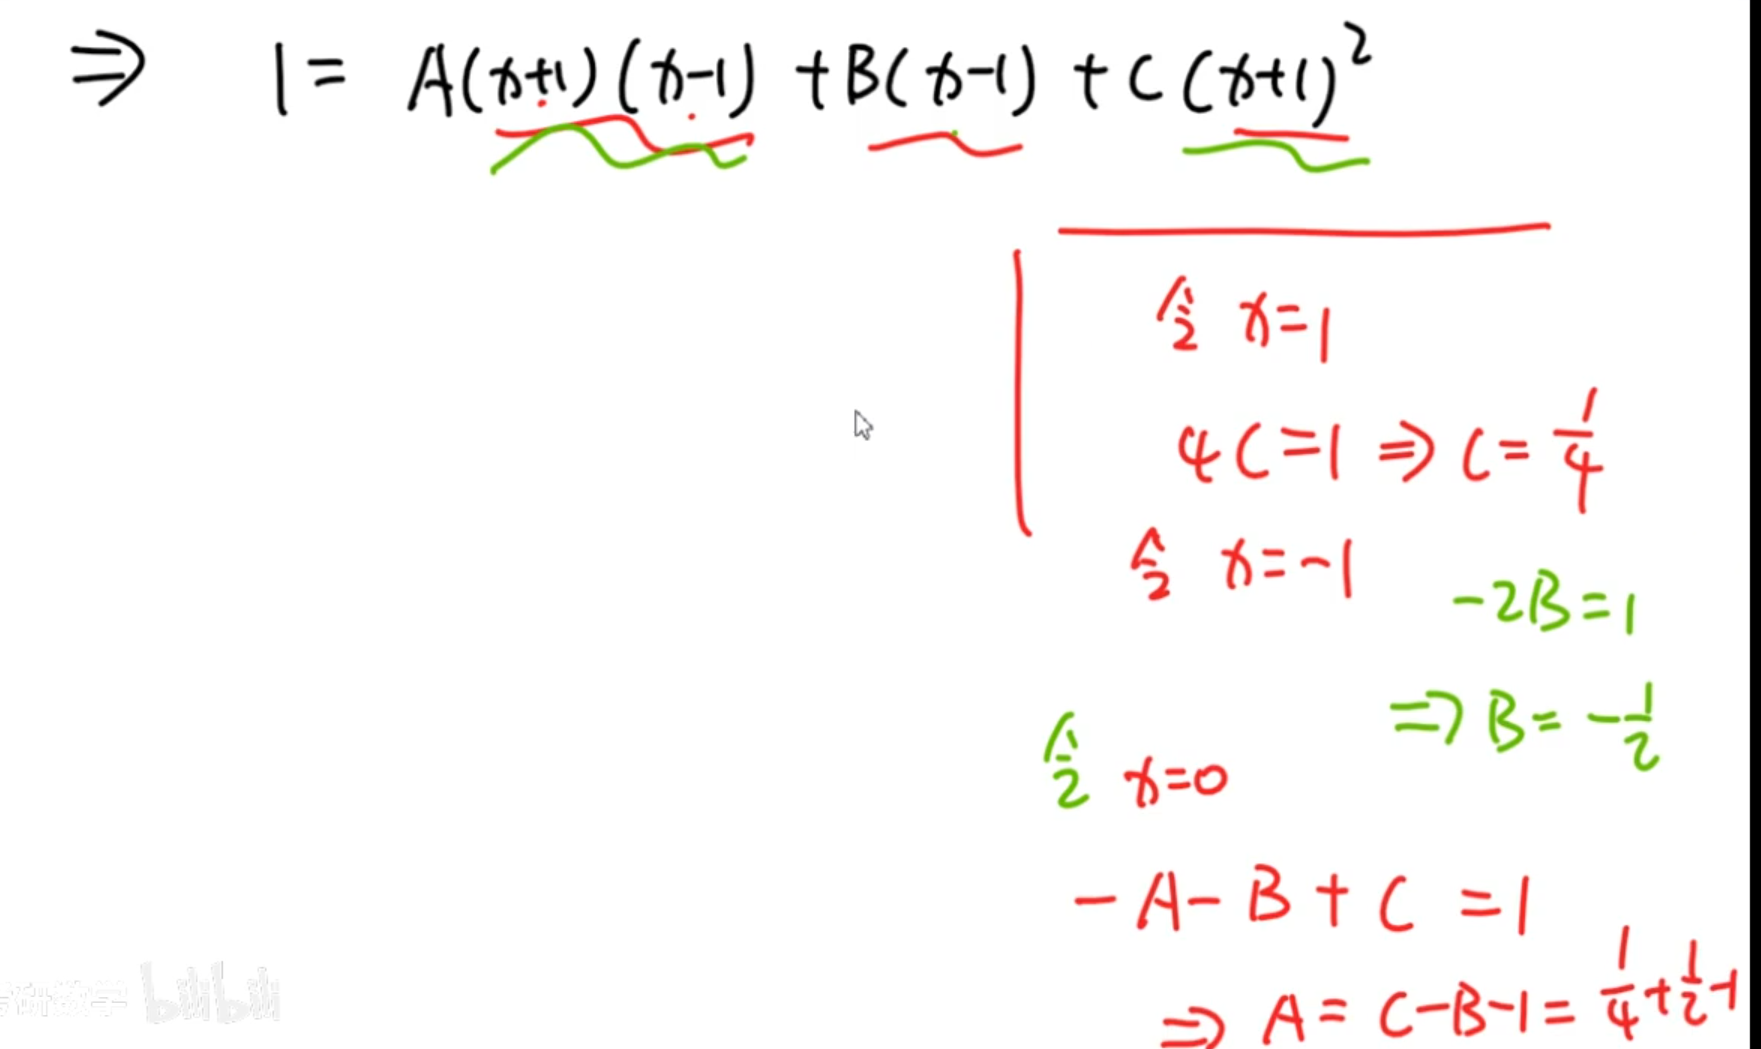 ⇒ 1 = A(x+1)(x-1) + B(x-1) + C(x+1)²
令 x=1
4C=1 ⇒ C=1/4
令 x=-1
-2B=1
⇒ B=-1/2
令 x=0
-A-B+C=1
⇒ A=C-B-1=1/4+1/2-1
考研数学 bilibili